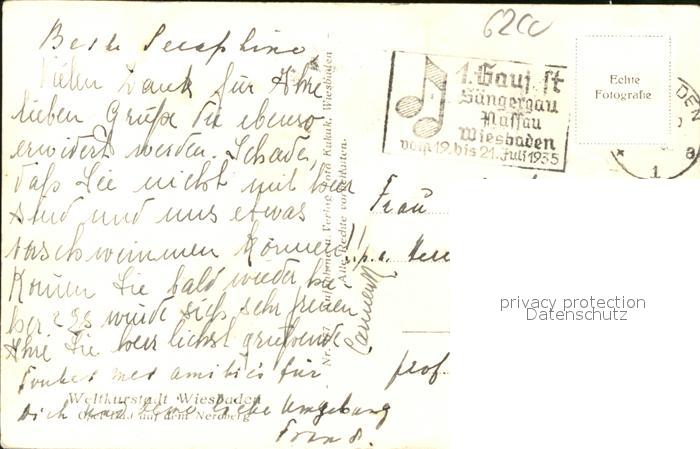 Beste Seraphine
Vielen Dank für Ihre
lieben Grüße die ebenso
erwidert werden. Schade,
daß Sie nicht mit hier
sind und uns etwas
vorschwimmen können!!
Kommen Sie bald wieder hie
her? Es würde sich sehr freuen
Ihre Sie herzlichst grüßende
Carmen
mes amitiés für
Dich und deine liebe Umgebung
Weltkurstadt Wiesbaden
Opelbad auf dem Neroberg
Aufnahme u. Verlag Foto Kukuk, Wiesbaden
Alle Rechte vorbehalten.
6200
1. Gaufest
Sängergau
Nassau
Wiesbaden
vom 19. bis 21. Juli 1935
Echte
Fotografie
DEN
8
1
Frau
prof.
privacy protection
Datenschutz